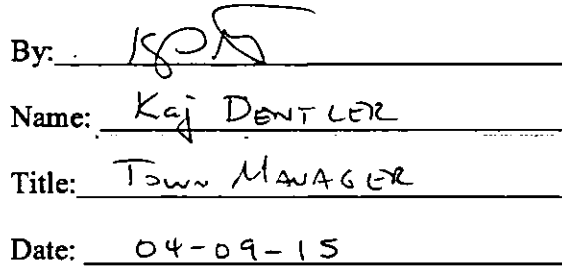 By:
Name: Kaj DENTLER
Title: Town MANAGER
Date: 04-09-15